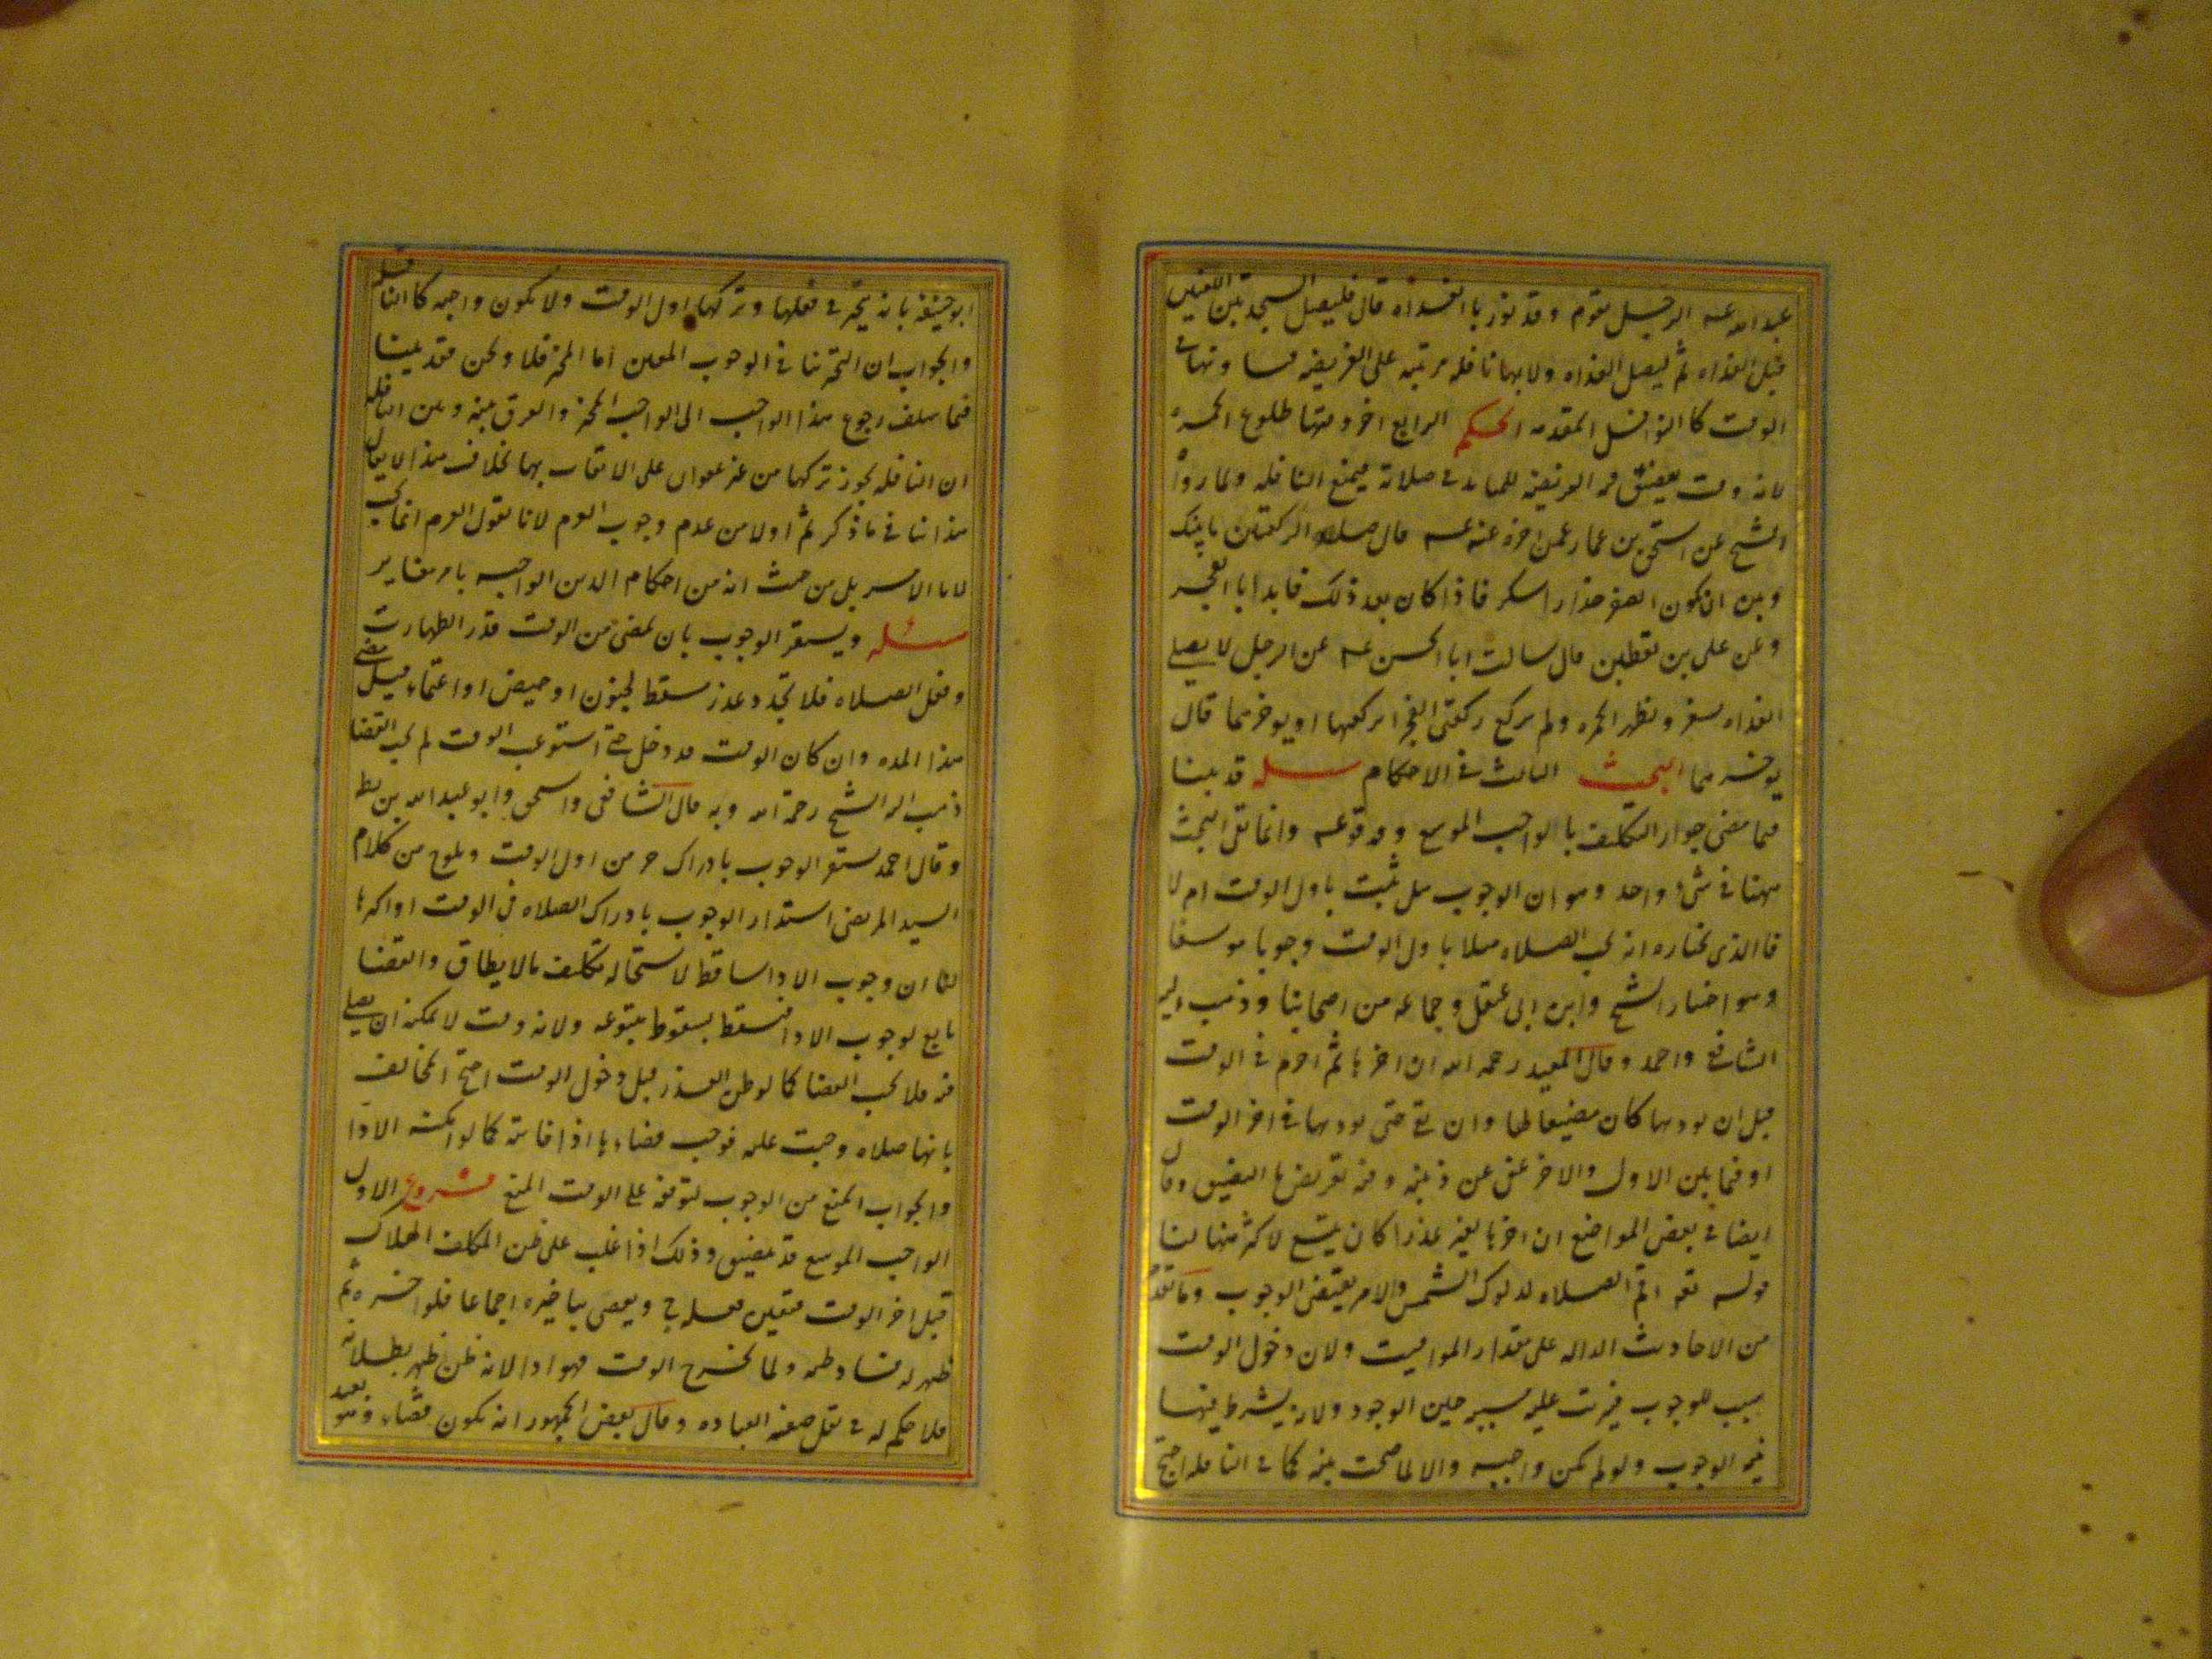 عبد الله عـه الرجل يقوم وقد نور با الغداه قال فليصل السجدتين اللتين
قبل الغداه ثم ليصل الغداه ولانها نافله مرتبه على الفريضه في
الوقت كا النوافل المقدمه الحكم الرابع اخر وقتها طلوع الحمره
لانه وقت يضيق فيه الفريضه في صلاته فيمنع النافله ولما رواه
الشيخ عن اسحق بن عمار عمن اخبره عنه عـه قال صل الركعتين ما بينك
وبين ان يكون الضوء حذاء راسك فاذا كان بعد ذلك فابدا با الفجر
وعن على بن يقطين قال سالت ابا الحسن عـه عن الرجل لا يصلى
الغداه يسفر وتظهر الحمره ولم يركع ركعتى الفجر ايركعهما او يوخرهما قال
يوخرهما البحث الثالث فى الاحكام مسله قد بينا
فيما مضى جواز التكليف با لواجب الموسع ووقوعه وانما بقى البحث
ههنا فى شىء واحد وهو ان الوجوب هل يثبت باول الوقت ام لا
فا الذى نختاره انه يجب الصلاه مثلا باول الوقت وجوبا موسعا
وهو اختيار الشيخ وابن ابى عقيل وجماعه من اصحابنا وذهب اليه
الشافعى واحمد وقال المفيد رحمه الله ان اخرها ثم اخترم فى الوقت
قبل ان يوديها كان مضيعا لها وان بقى حتى يوديها فى اخر الوقت
او فيما بين الاول والاخر عفى عن ذنبه وفيه تعريض با التضييق وقال
ايضا فى بعض المواضع ان اخرها لغير عذر كان لنا
قوله تعه اقم الصلاه لدلوك الشمس والامر يقتضى الوجوب وما تقدم
من الاحاديث الداله على مقدار المواقيت ولان دخول الوقت
سبب للوجوب فيترتب عليه مسببه حين الوجود ولانه يشترط فيها
نيه الوجوب ولو لم تكن واجبه والا لما صحت بنيه كما فى النافله احتج
ابو حنيفه بانه يخير فى فعلها وتركها اول الوقت ولا تكون واجبه كا النافله
والجواب ان التخير ينافى الوجوب المعين اما المخير فلا ونحن فقد بينا
فيما سلف رجوع هذا الواجب الى الواجب المخير والفرق بينه وبين النافله
ان النافله يجوز تركها من غير على الاتيان بها بخلاف هذا لا يقال
هذا ينافى ما ذكرتم اولا من عدم وجوب العزم لانا نقول العزم انما يجب
لا با الامر بل من حيث انه من احكام الدين الواجبه بامر مغاير
مسئله ويستقر الوجوب بان يمضى من الوقت قدر الطهارت
وفعل الصلاه فلا تجدد عذر مسقط لجنون او حيض او اغماء قبل مضى
هذا المده وان كان الوقت قد دخل حتى استوعب الوقت لم يجب القضا
ذهب اليه الشيخ رحمة الله وبه قال الشافعى واسحق وابو عبد الله بن بط
وقال احمد يستقر الوجوب بادراك جزء من اول الوقت ويلوح من كلام
السيد المرتضى استقرار الوجوب بادراك الصلاه فى الوقت او اكثرها
لنا ان وجوب الادا ساقط لاستحاله تكليف مالا يطاق والقضا
تابع لوجوب الادا فيسقط بسقوط متبوعه ولانه وقت لا يمكنه ان يصلى
فيه فلا يجب القضا كما لو طرى العذر قبل دخول الوقت احتج المخالف
بانها صلاه وجبت عليه فوجب قضاءها اذا فاتته كما لو امكنه الادا
والجواب المنع من الوجوب لتوقفه على الوقت المتسع فروع الاول
الواجب الموسع قد يضيق وذلك اذا غلب على ظن المكلف الهلاك
قبل اخر الوقت فيتعين فعله ح ويعصى بتاخيره اجماعا فلو اخره ثم
ظهر له فساد ظنه ولما يخرج الوقت فهو ادا لانه ظن ظهر بطلانه
فلا حكم له فى نقل صفه العباده وقال بعض الجمهور انه يكون قضاء وهو بعيد